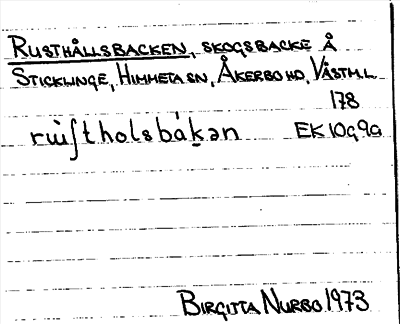 RUSTHÅLLSBACKEN, SKOGSBACKE Å
STICKLINGE, HIMMETA SN, ÅKERBO HD, VÄSTM.L.
178
rẁʃtholsbák̠ən EK 10g9a
BIRGITTA NURBO 1973